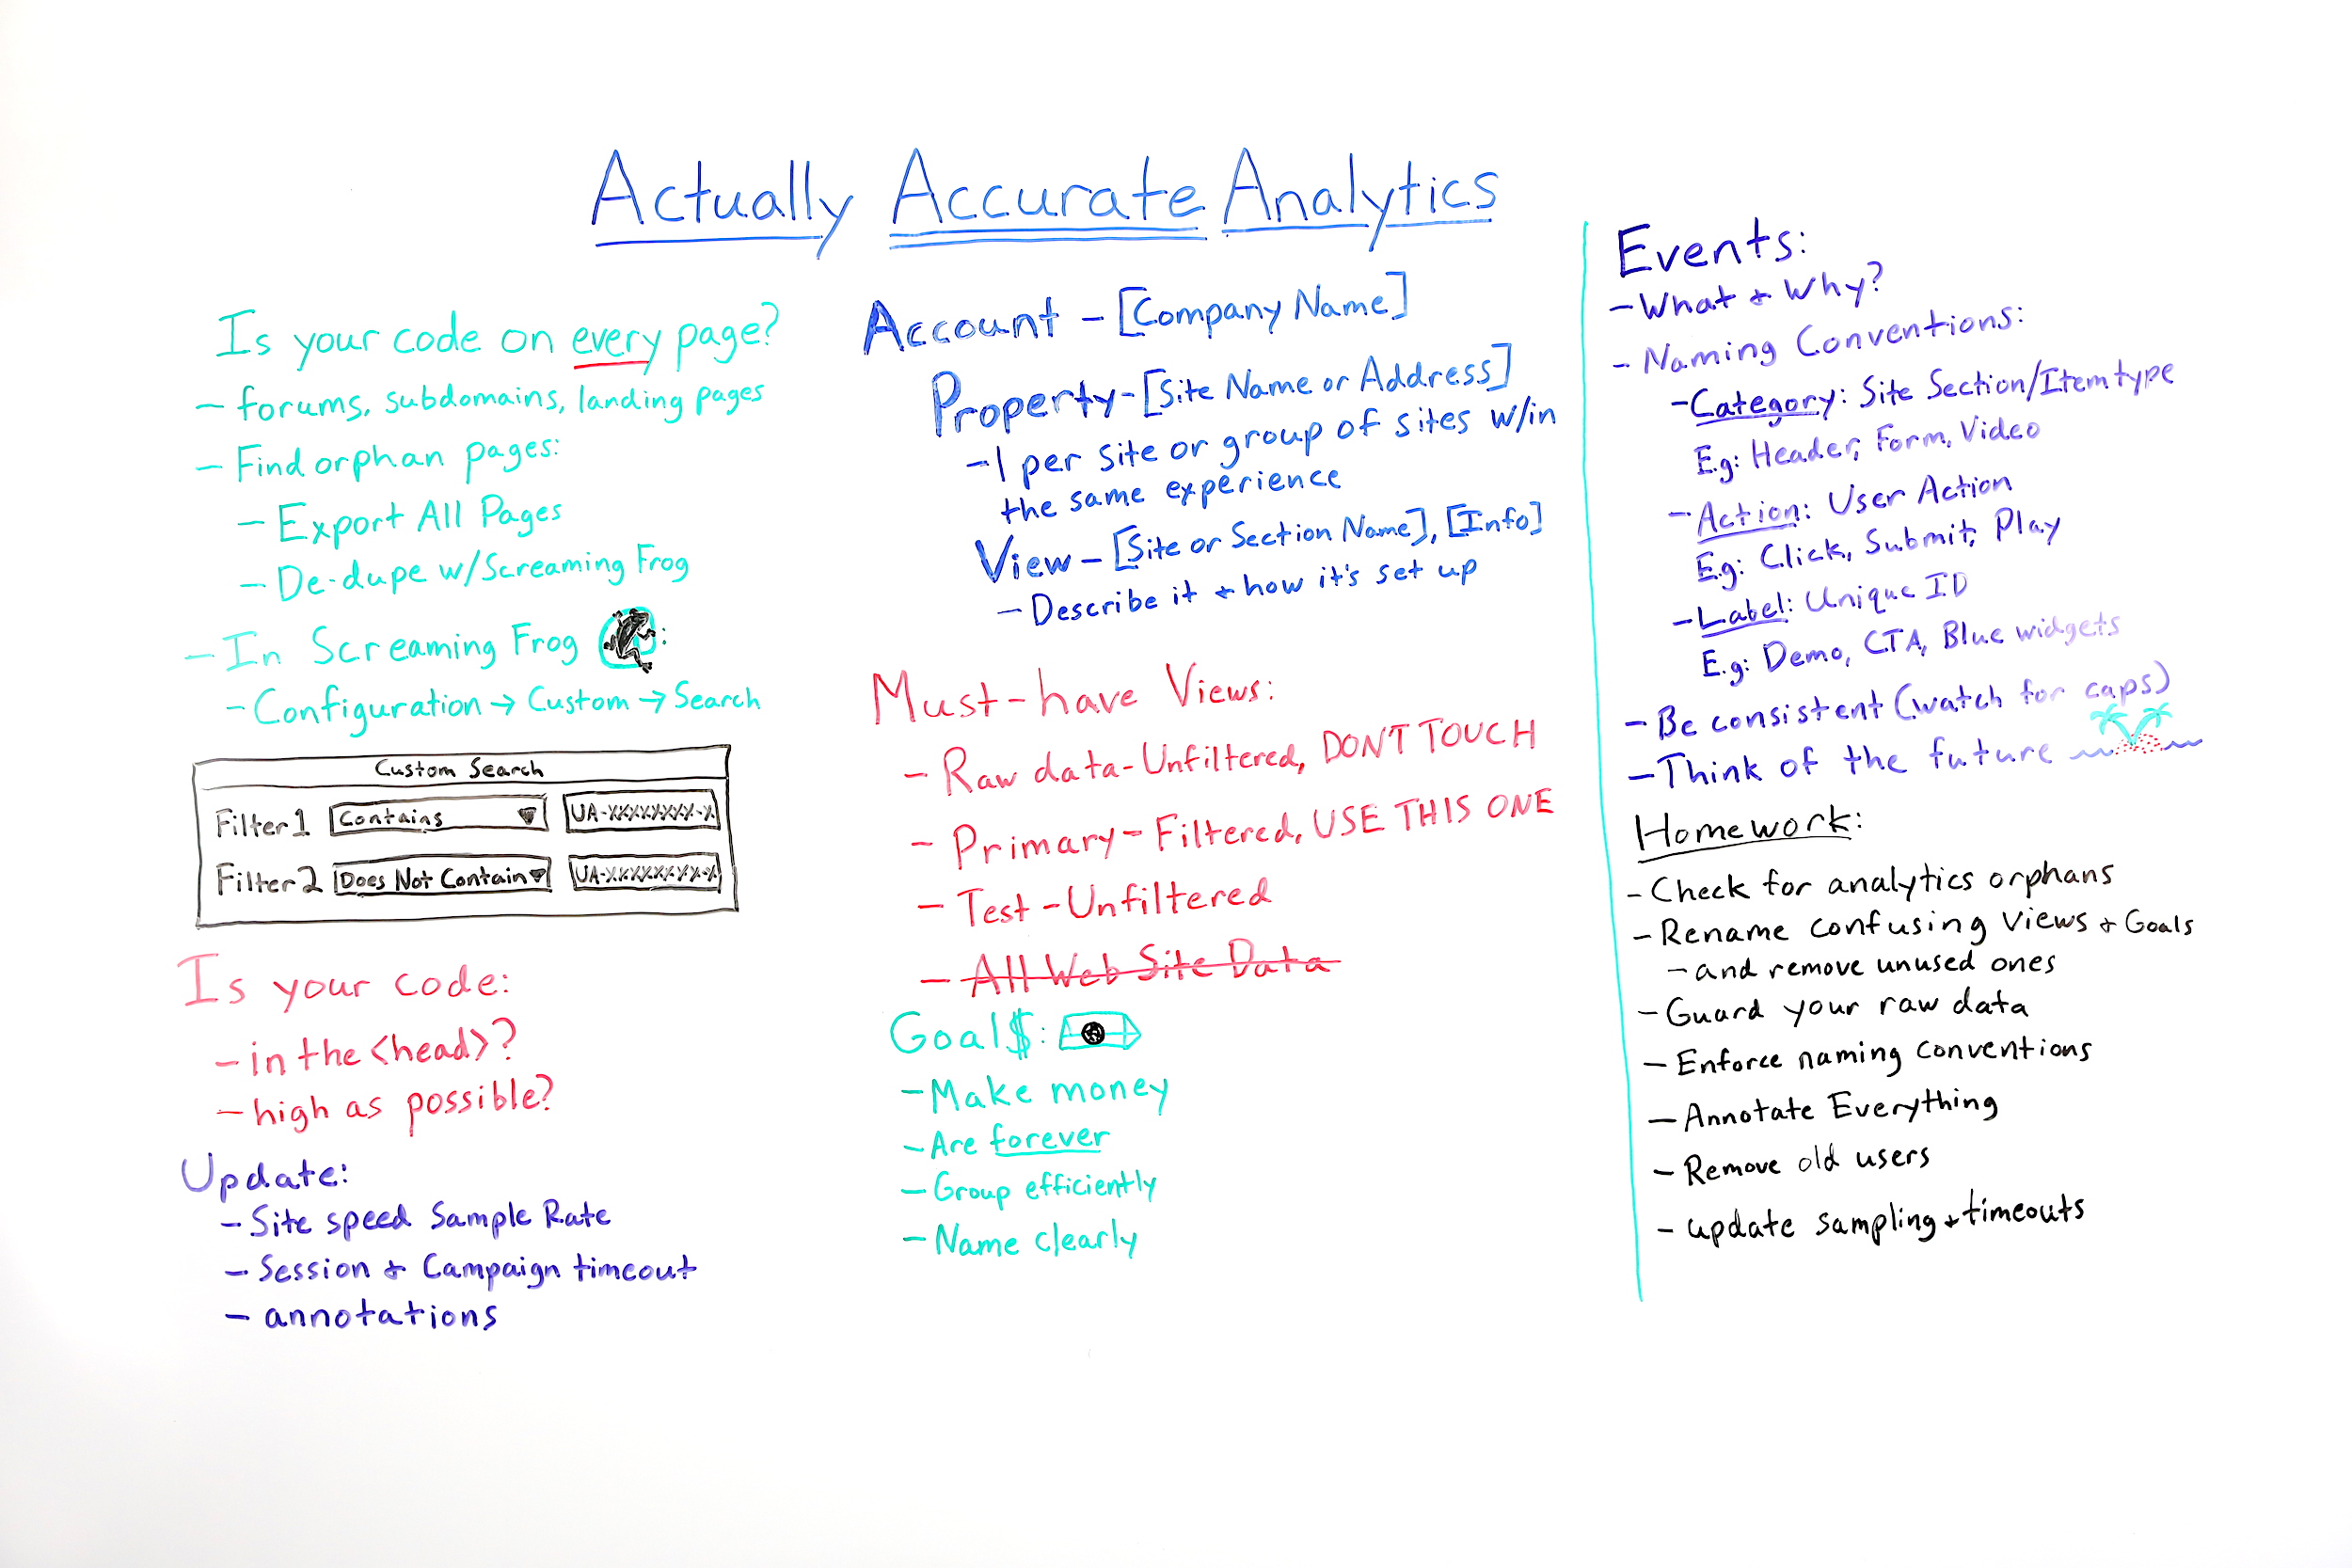 Actually Accurate Analytics
Is your code on every page?
- forums, subdomains, landing pages
- Find orphan pages:
- Export All Pages
- De-dupe w/Screaming Frog
- In Screaming Frog :
- Configuration → Custom → Search
Custom Search
Filter 1 Contains UA-XXXXXXXX-X
Filter 2 Does Not Contain UA-XXXXXXXX-X
Is your code:
- in the <head>?
- high as possible?
Update:
- Site speed Sample Rate
- Session + Campaign timeout
- annotations
Account - [Company Name]
Property - [Site Name or Address]
- 1 per site or group of sites w/in
the same experience
View - [Site or Section Name], [Info]
- Describe it + how it's set up
Must-have Views:
- Raw data - Unfiltered, DON'T TOUCH
- Primary - Filtered, USE THIS ONE
- Test - Unfiltered
- All Web Site Data
Goal$:
- Make money
- Are forever
- Group efficiently
- Name clearly
Events:
- What + Why?
- Naming Conventions:
- Category: Site Section/Item type
E.g: Header, Form, Video
- Action: User Action
E.g: Click, Submit, Play
- Label: Unique ID
E.g: Demo, CTA, Blue widgets
- Be consistent (watch for caps)
- Think of the future
Homework:
- Check for analytics orphans
- Rename confusing Views + Goals
- and remove unused ones
- Guard your raw data
- Enforce naming conventions
- Annotate Everything
- Remove old users
- update sampling + timeouts